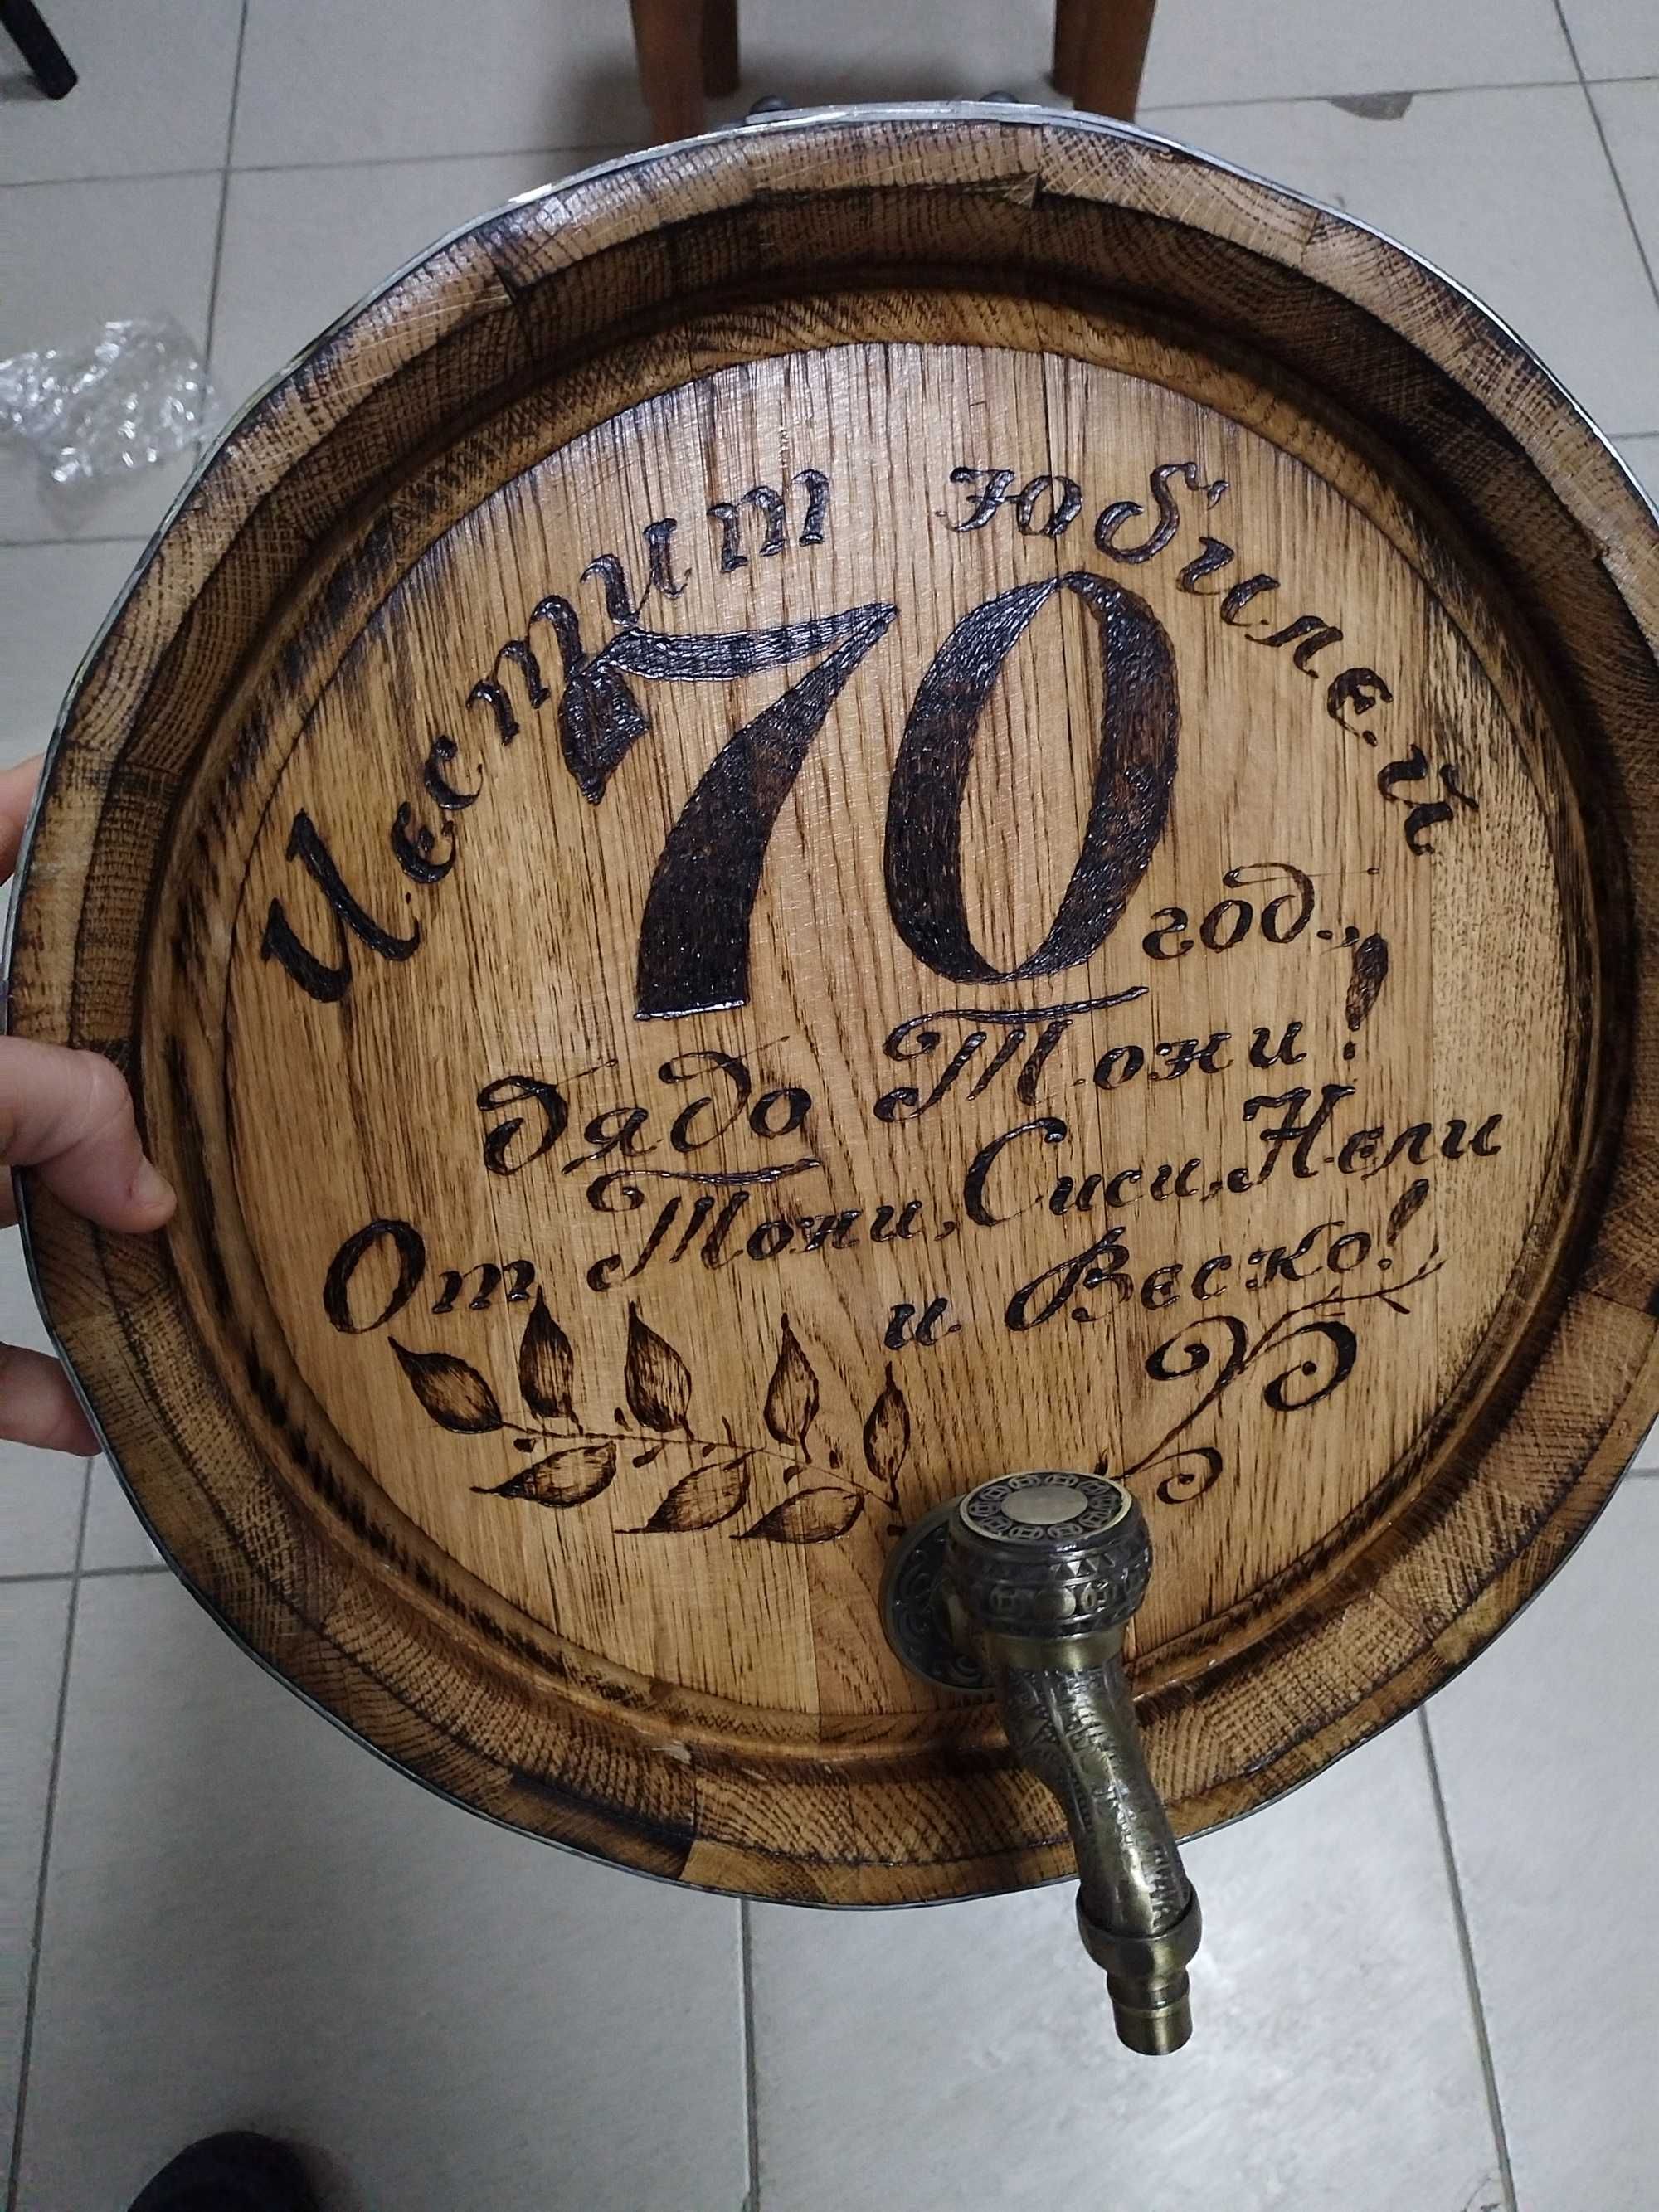 Честит юбилей
70 год.,
дядо Тони!
От Тони, Сиси, Нели
и Веско!